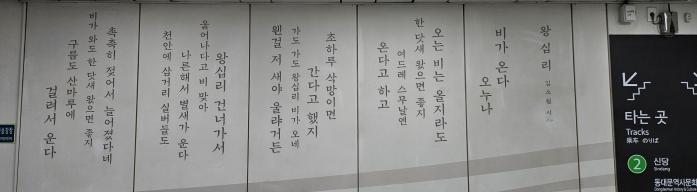 왕십리
김소월 시
비가 온다
오누나
오는 비는 올지라도
한 닷새 왔으면 좋지
여드레 스무날엔
온다고 하고
초하루 삭망이면
간다고 했지
가도 가도 왕십리 비가 오네
웬걸 저 새야 울랴거든
왕십리 건너가서
울어나다고 비 맞아
나른해서 벌새가 운다
천안에 삼거리 실버들도
촉촉히 젖어서 늘어졌다네
비가 와도 한 닷새 왔으면 좋지
구름도 산마루에
걸려서 운다
타는 곳
Tracks
乘车 のりば
2 신당
Sindang
동대문역사문화